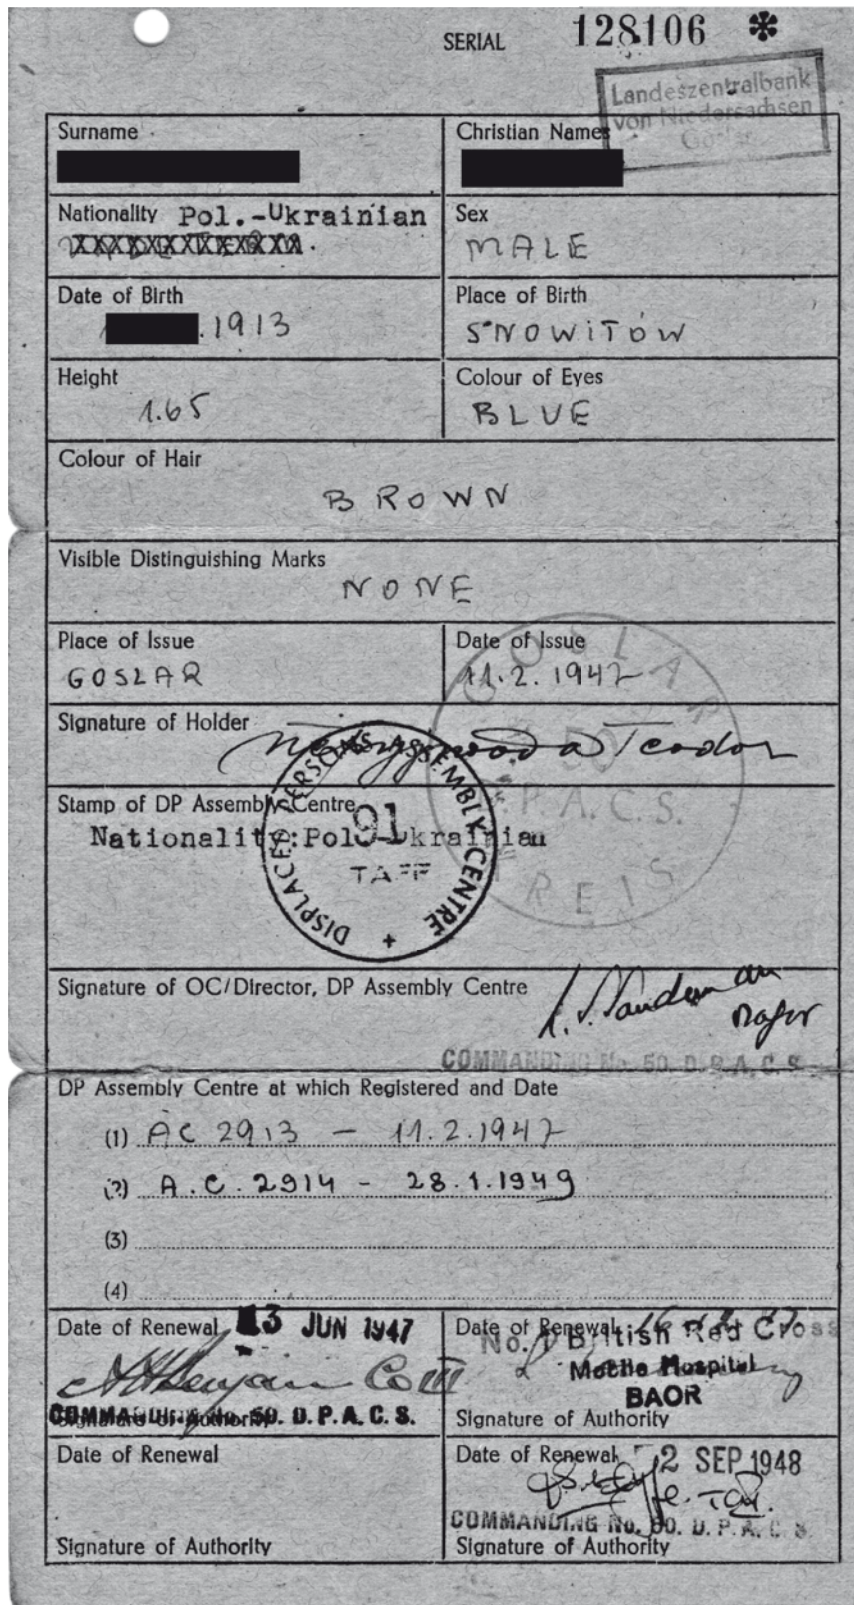 SERIAL 128106 *
Landeszentralbank
von Niedersachsen
Goslar
Surname
Christian Names
Nationality Pol.-Ukrainian
XXXXXXXXXXXXXX.
Sex
MALE
Date of Birth
.1913
Place of Birth
SNOWITÓW
Height
1.65
Colour of Eyes
BLUE
Colour of Hair
BROWN
Visible Distinguishing Marks
NONE
Place of Issue
GOSLAR
Date of Issue
11.2.1947
GOSLAR
50
D.P.A.C.S.
KREIS
Signature of Holder
Teodor
Stamp of DP Assembly Centre
Nationality:Pol.-Ukrainian
DISPLACED PERSONS ASSEMBLY CENTRE +
91
TAFF
Signature of OC/Director, DP Assembly Centre
Major
COMMANDING No. 50. D.P.A.C.S.
DP Assembly Centre at which Registered and Date
(1) AC 2913 - 11.2.1947
(2) A.C. 2914 - 28.1.1949
(3)
(4)
Date of Renewal 13 JUN 1947
COMMANDING No. 50. D.P.A.C.S.
Signature of Authority
Date of Renewal
No. 1 British Red Cross
Mobile Hospital
BAOR
Signature of Authority
Date of Renewal
Signature of Authority
Date of Renewal 2 SEP 1948
COMMANDING No. 50. D.P.A.C.S.
Signature of Authority